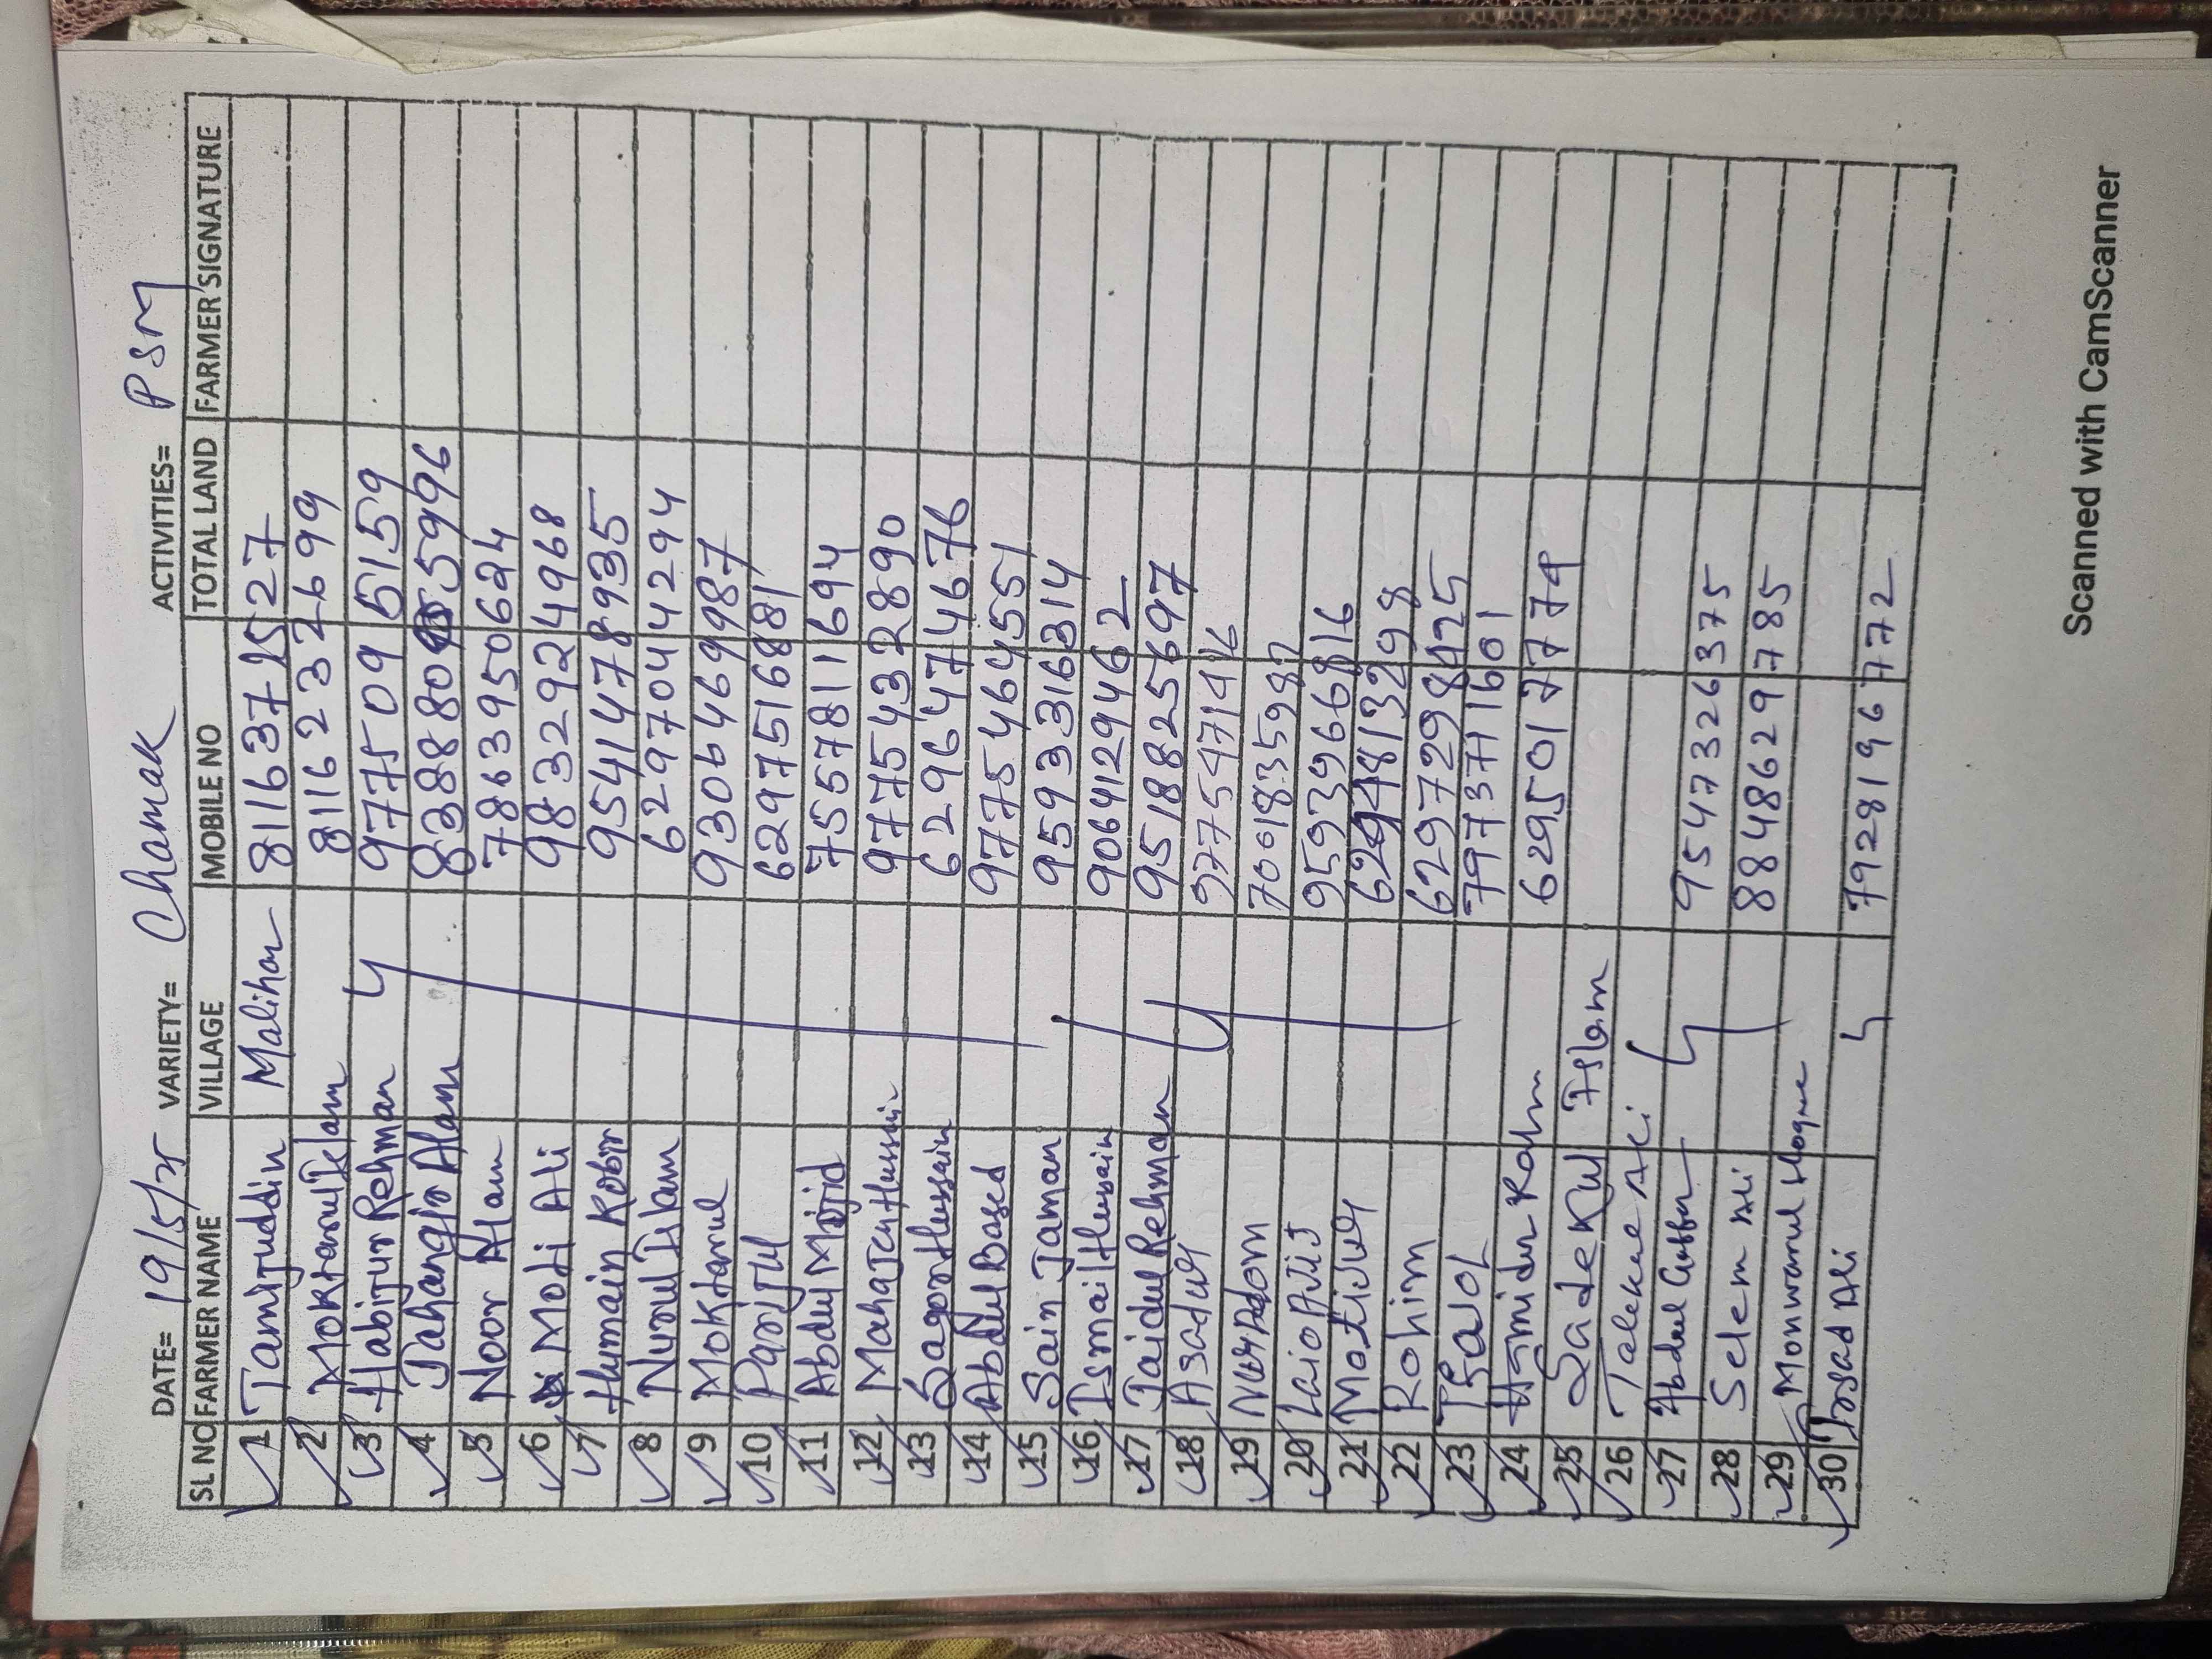 DATE= 19/5/25 VARIETY= Chamak ACTIVITIES= PSM
SL NO FARMER NAME VILLAGE MOBILE NO TOTAL LAND FARMER SIGNATURE
1 Tamijuddin Malihar 8116372527
2 Moktarul Islam 8116232699
3 Habijur Rehman 9775095159
4 Jahangir Alam 5996
5 Noor Alam 7863950624
6 Moti Ali 9832924968
7 Humain Kobir 9541478935
8 Nurul Islam 6297044294
9 Moktarul 9306469987
10 Parijul 6297516881
11 Abdul Majid 7557811694
12 Hussain 9775432890
13 Sagor Hussain 6296474676
14 Abdul Based 9775464551
15 Sain Jaman 9593316314
16 Ismail Hussain 9064129462
17 Jaidul Rehman 9518825697
18 Asadul
19 Nur Adom 7001835987
20 9593966816
21 Matiul
22 Rohim 6297298425
23 7973711601
24 Hamidur Rohm 6295017779
25 Sadekul Islam
26 Ali
27 Abdul Gaffar 9547326375
28 Selem Ali 8848629785
29 Monwarul Hoque
30 Irsad Ali 7928196772
Scanned with CamScanner